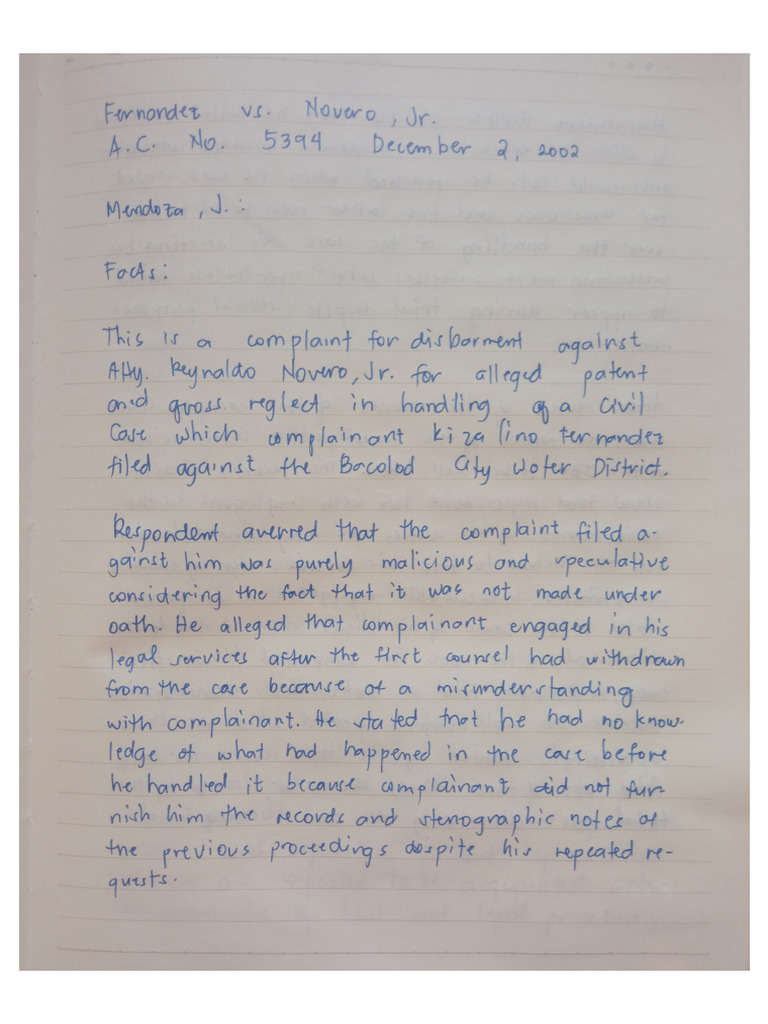 Fernandez vs. Novero, Jr.
A.C. No. 5394 December 2, 2002
Mendoza, J.:
Facts:
This is a complaint for disbarment against
Atty. Reynaldo Novero, Jr. for alleged patent
and gross neglect in handling of a Civil
Case which complainant Rizalino Fernandez
filed against the Bacolod City Water District.
Respondent averred that the complaint filed a-
gainst him was purely malicious and speculative
considering the fact that it was not made under
oath. He alleged that complainant engaged in his
legal services after the first counsel had withdrawn
from the case because of a misunderstanding
with complainant. He stated that he had no know-
ledge of what had happened in the case before
he handled it because complainant did not fur-
nish him the records and stenographic notes of
the previous proceedings despite his repeated re-
quests.